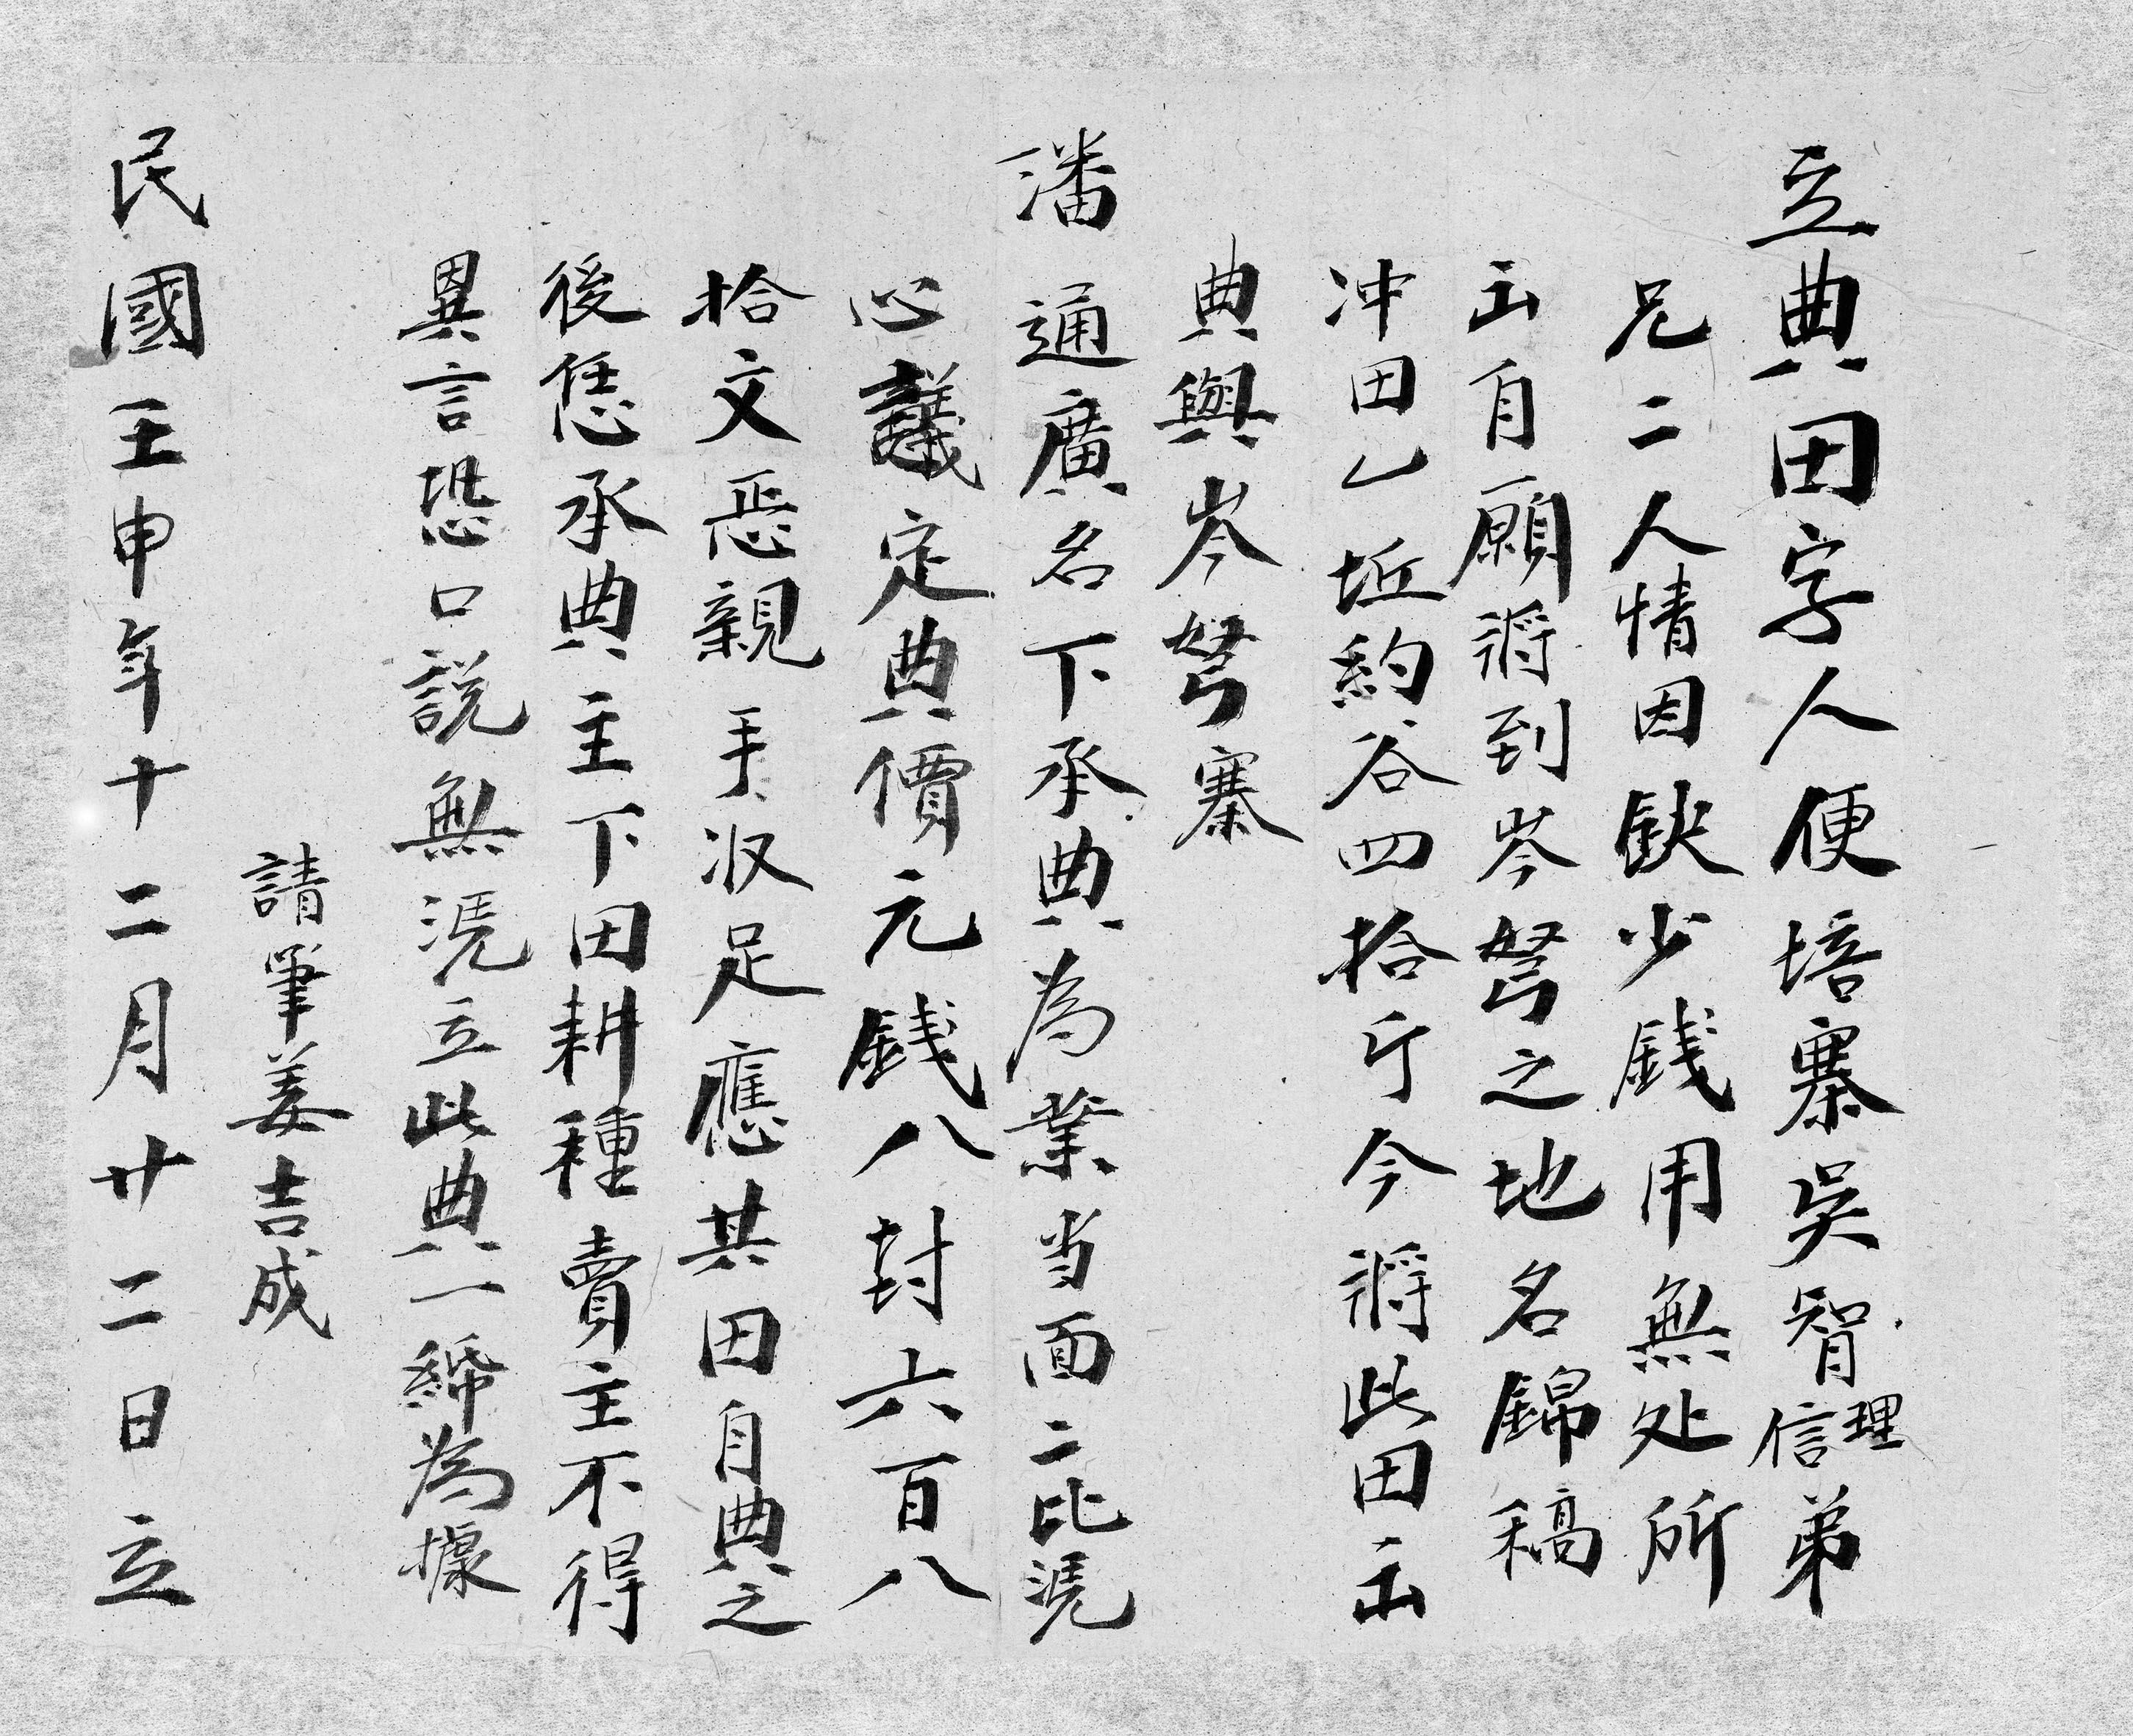 立典田字人便培寨吳智理信弟
兄二人情因缺少錢用無处所
出自願將到岑弩之地名錦稿
冲田乙坵約谷四拾斤今將此田出
典與岑弩寨
潘通廣名下承典為業当面二比凴
心議定典價元錢八封六百八
拾文悉親手收足應其田自典之
後恁承典主下田耕種賣主不得
異言恐口説無凴立此典一紙為據
請筆姜吉成
民國壬申年十二月廿二日立